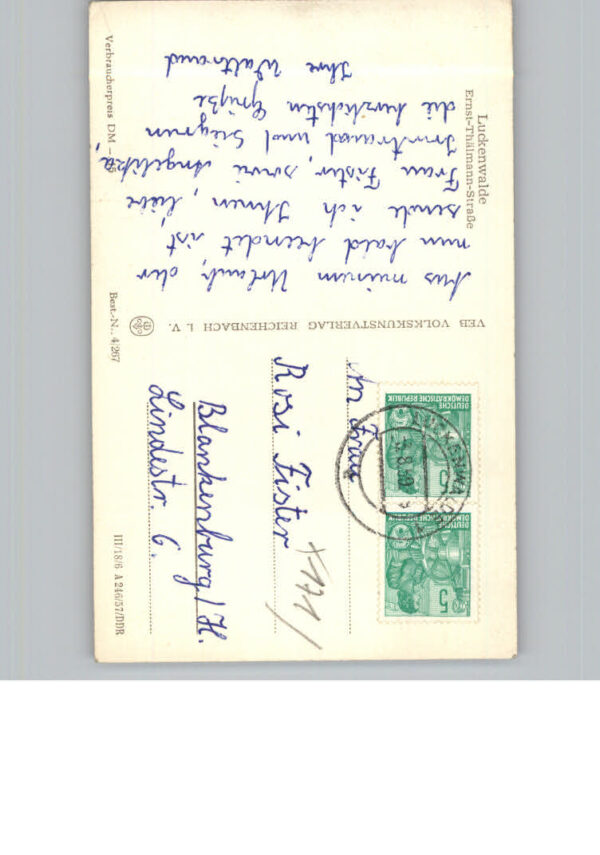 Luckenwalde
Ernst-Thälmann-Straße
Aus meinem Urlaub, der
nun bald beendet ist,
sende ich Ihnen, liebe
Frau Fister, sowie Angelika,
Irmtraud und Siegrun
die herzlichsten Grüße
Ihre Waltraud
Verbraucherpreis DM
VEB VOLKSKUNSTVERLAG REICHENBACH I. V.
Best-N.. 4/267
DEUTSCHE
DEMOKRATISCHE REPUBLIK
5
DEUTSCHE
DEMOKRATISCHE REPUBLIK
5
LUCKENWALDE
An Frau
Rosi Fister
Blankenburg/H.
Lindestr. 6.
III/18/6 A 246/57/DDR